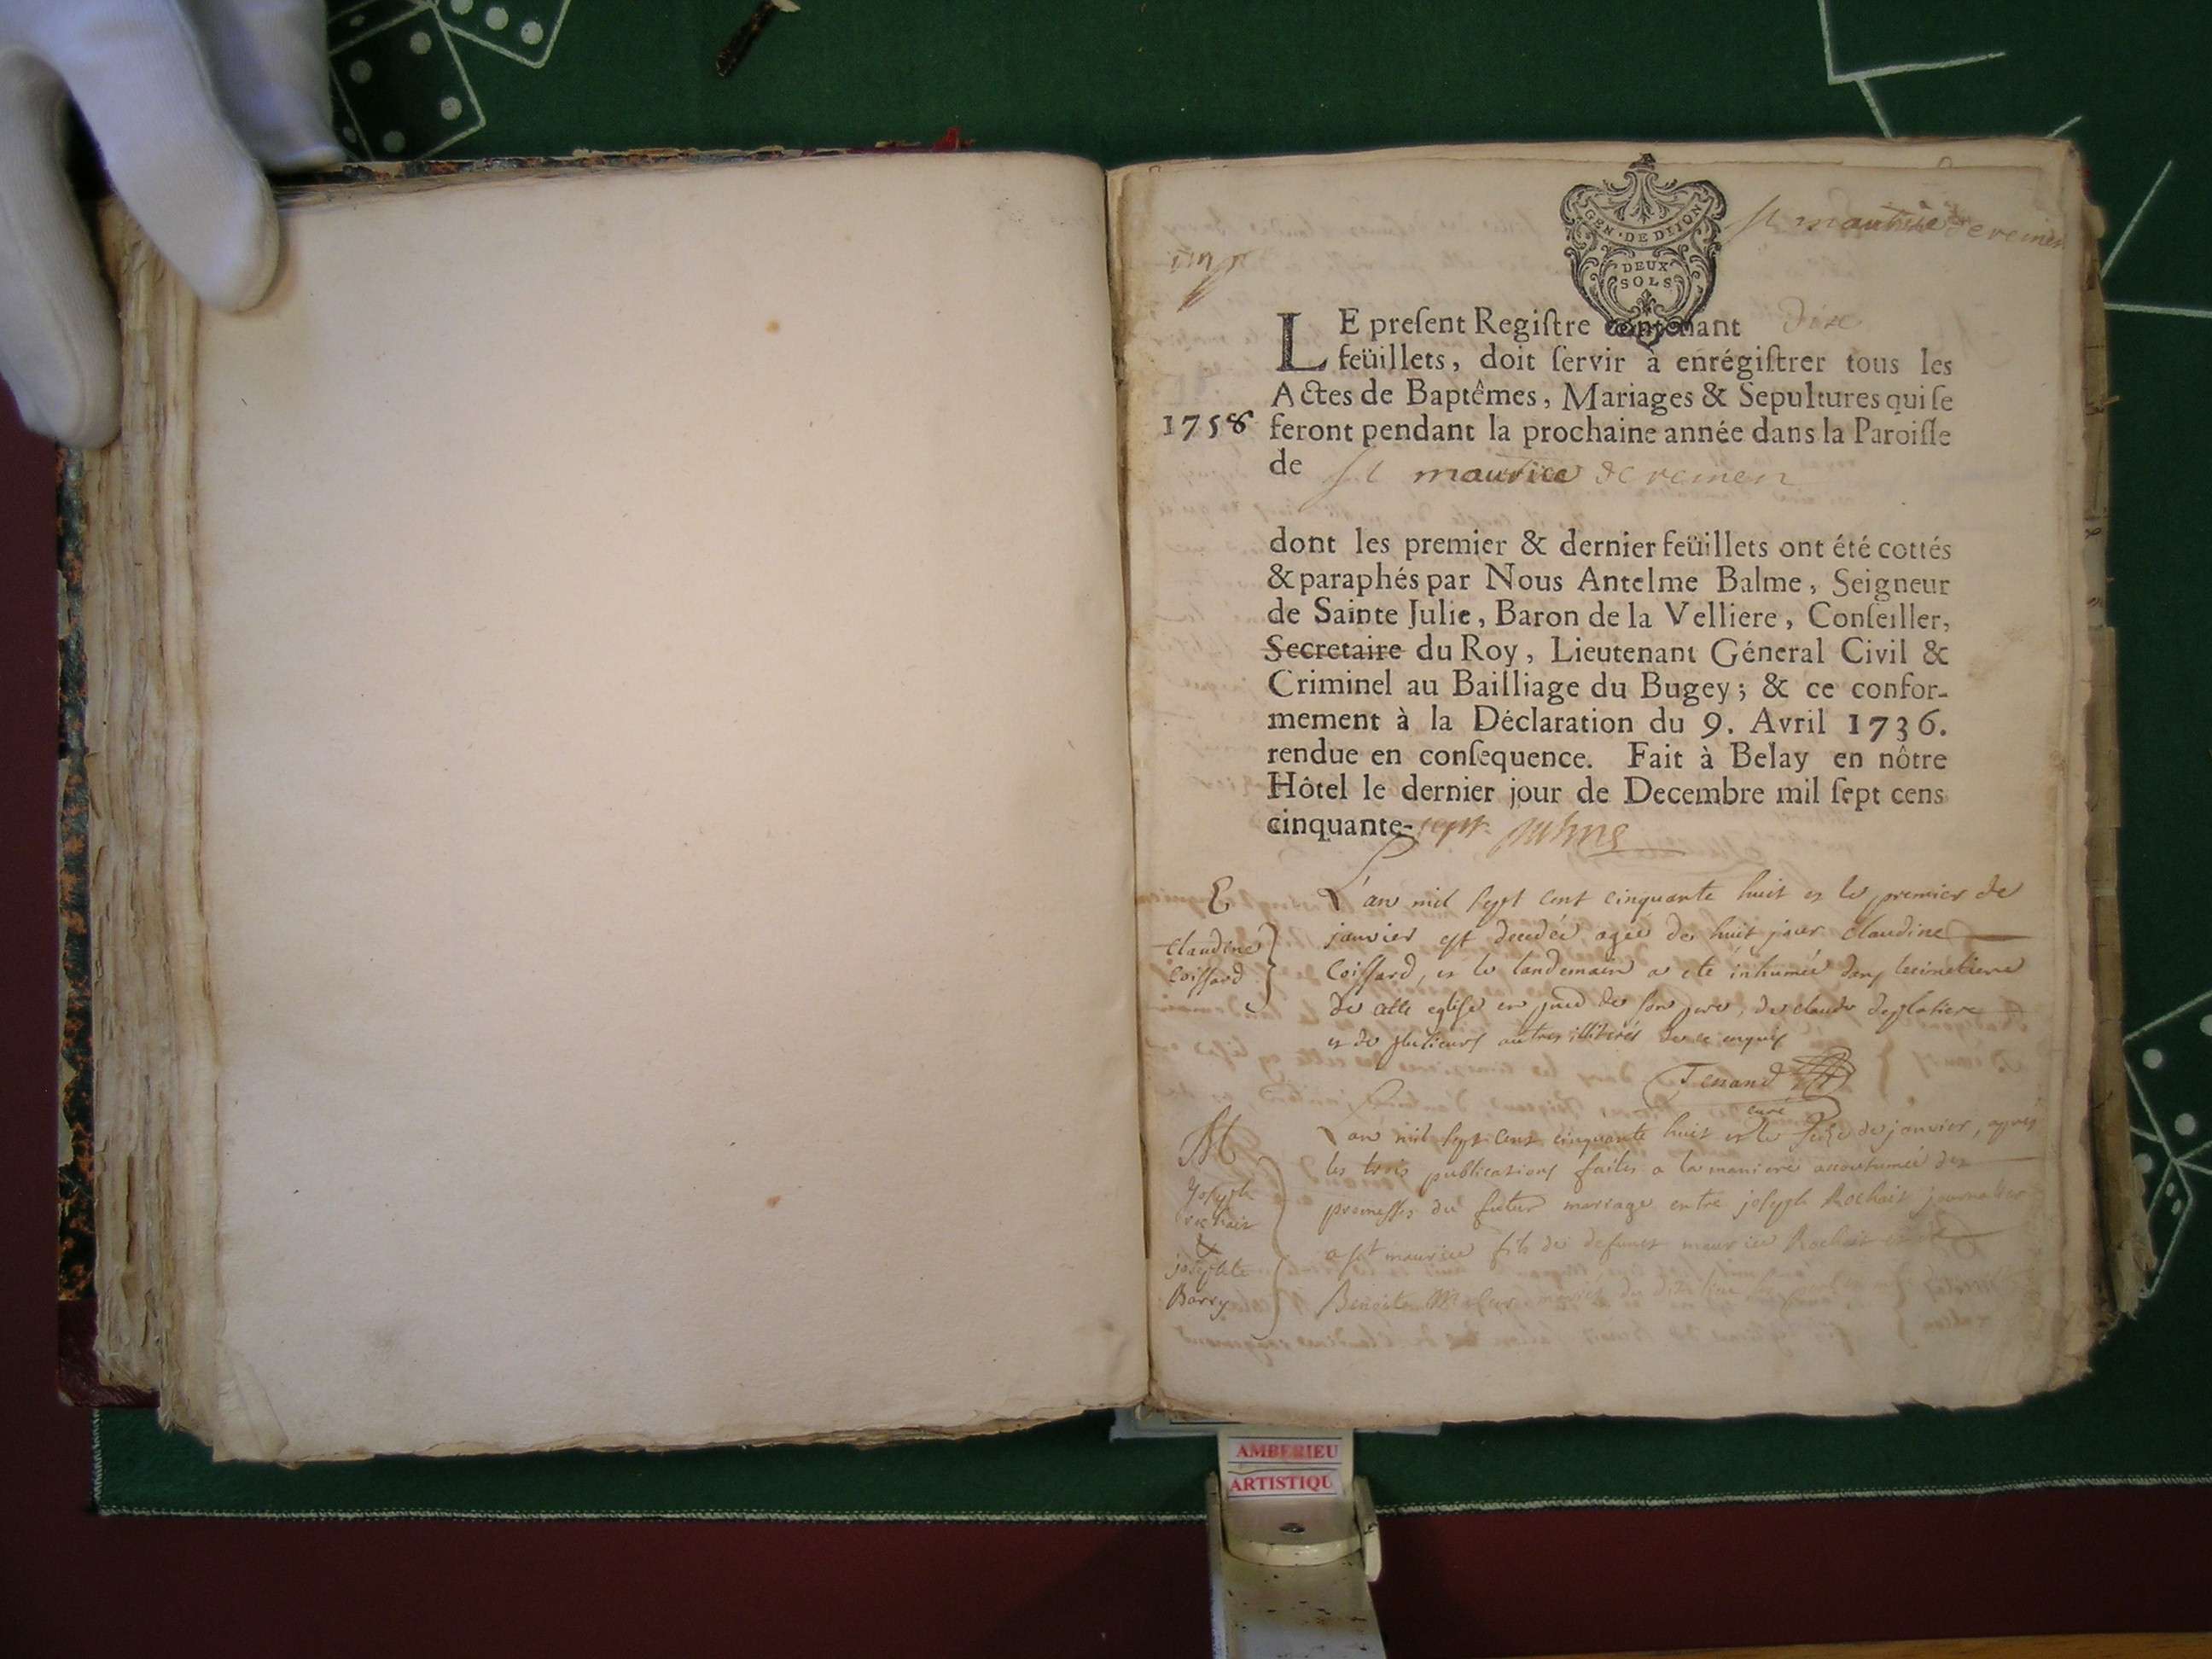 GEN · DE DIJON
DEUX
SOLS
st maurice de remen
LE preſent Regiſtre contenant dix
feüillets, doit ſervir à enrégiſtrer tous les
Actes de Baptêmes, Mariages & Sepultures qui ſe
1758 feront pendant la prochaine année dans la Paroiſſe
de st maurice de remen
dont les premier & dernier feüillets ont été cottés
& paraphés par Nous Antelme Balme, Seigneur
de Sainte Julie, Baron de la Velliere, Conſeiller,
Secretaire du Roy, Lieutenant Géneral Civil &
Criminel au Bailliage du Bugey; & ce confor-
mement à la Déclaration du 9. Avril 1736.
rendue en conſequence. Fait à Belay en nôtre
Hôtel le dernier jour de Decembre mil ſept cens
cinquante-sept
E
claudine
Coissard
L'an mil sept cent cinquante huit et le premier de
janvier est decedée agée de huit jour claudine
Coissard, et le landemain a ete inhumée dans le cimetiere
de cette eglise en de son pere, de claude
et de plusieurs autres illiterés de ce enquis
Tenand
curé
M
Joseph
rochait
&
josephte
Barry
L'an mil sept cent cinquante huit et le seize de janvier, apres
les trois publications faites a la maniere accoutumée des
promesses du futur mariage entre joseph Rochait journalier
a st maurice fils de defunct maurice Rochait et de
Benoite
AMBERIEU
ARTISTIQU